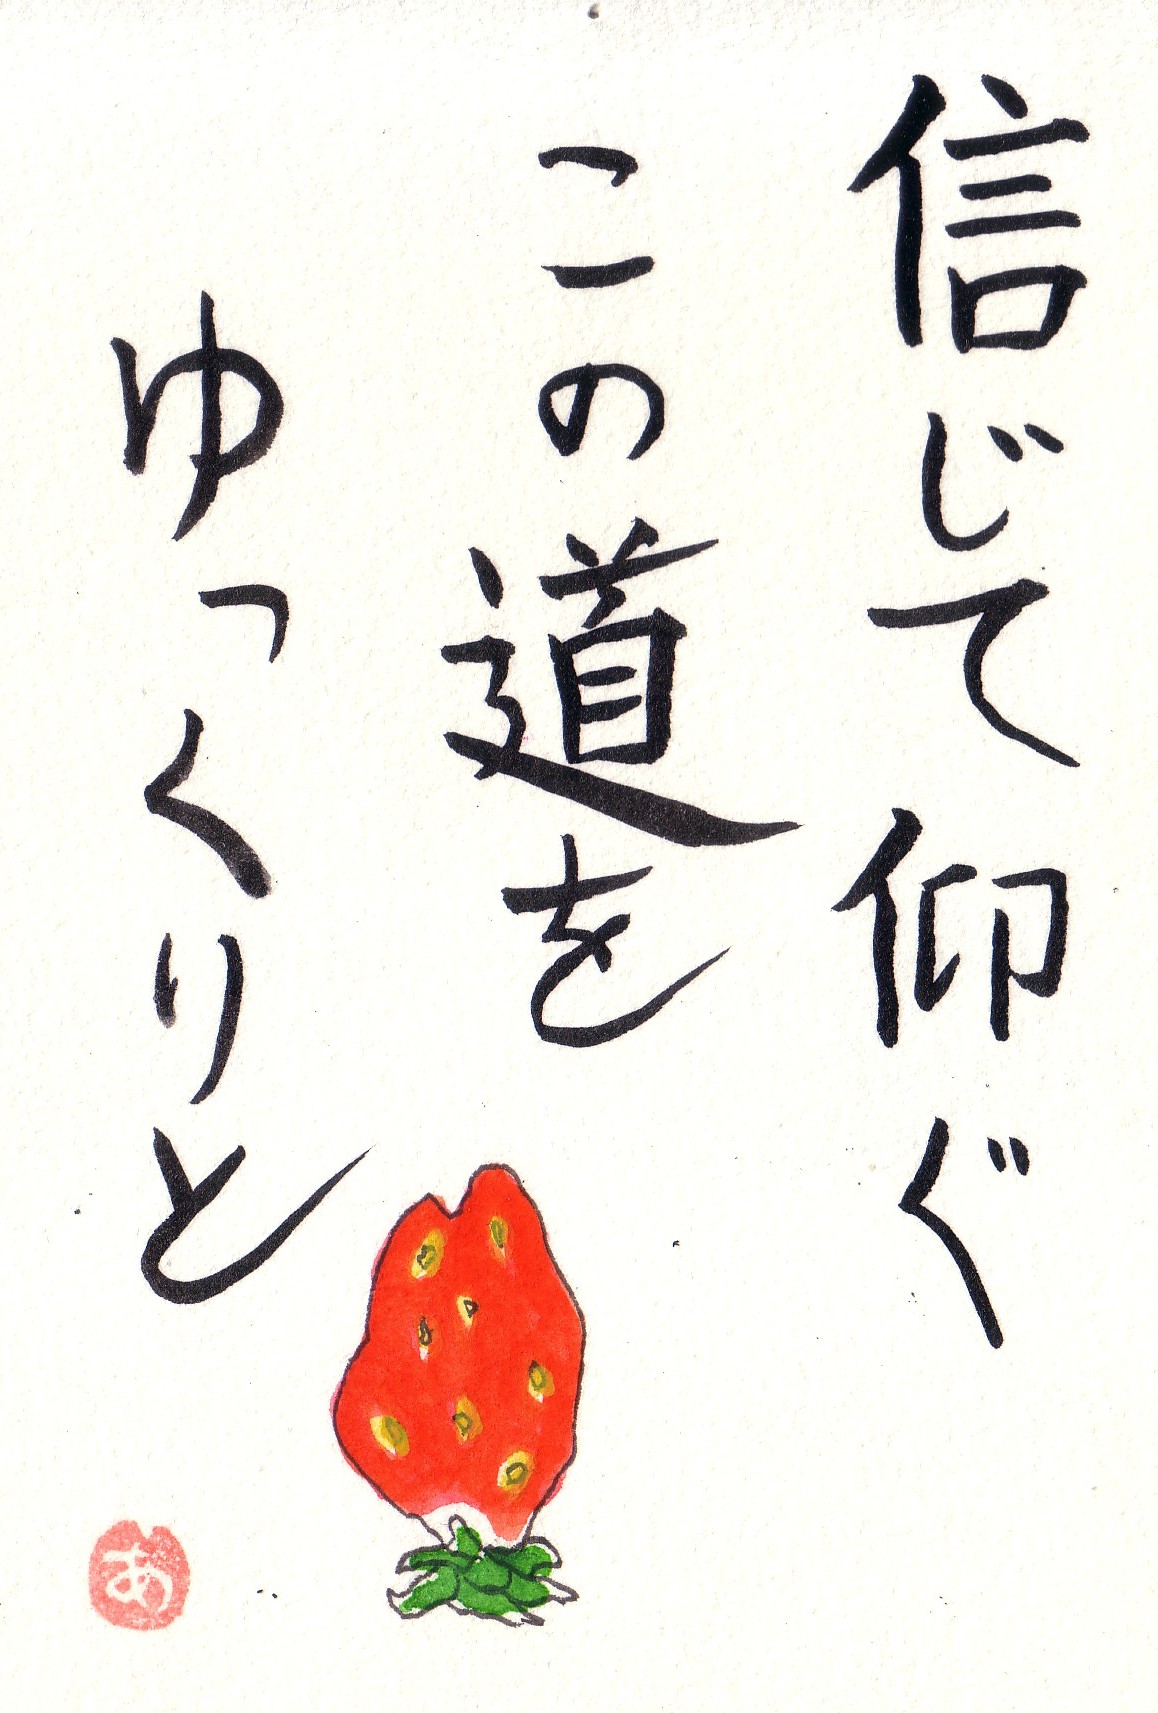 信じて仰ぐ
この道を
ゆっくりと
あ